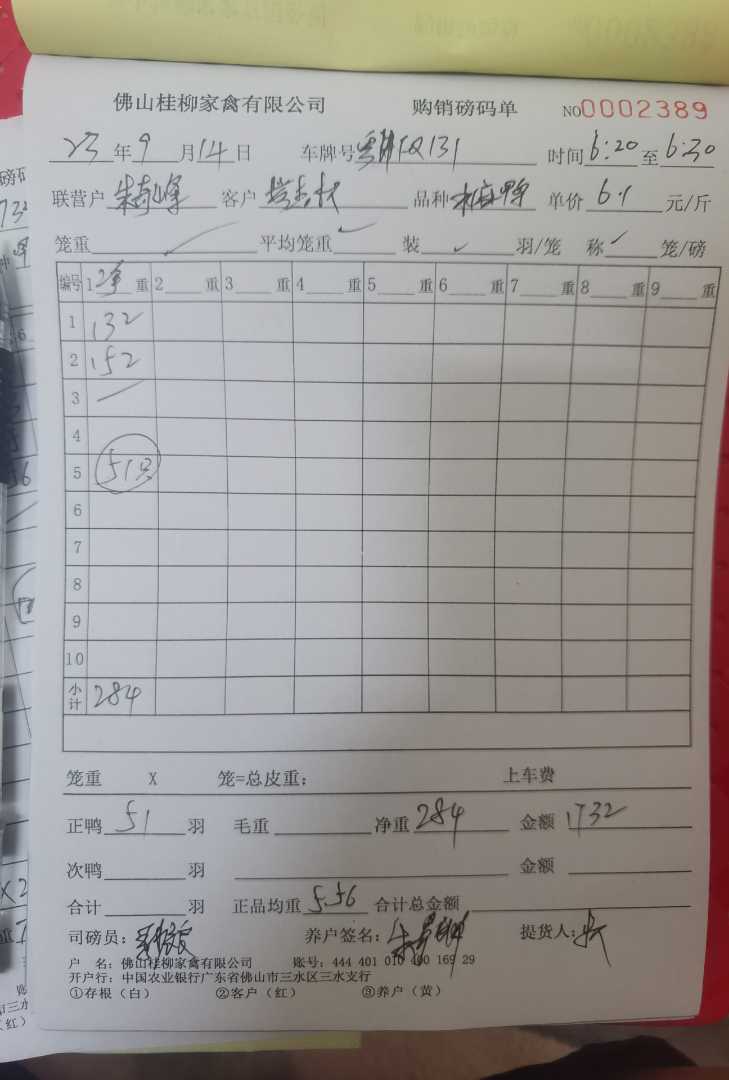 佛山桂柳家禽有限公司 购销磅码单 NO0002389
23年9月14日 车牌号 Q131 时间6:20至6:30
联营户朱奇峰 客户 品种麻鸭 单价6.1元/斤
笼重 平均笼重 装 羽/笼 称 笼/磅
编号 1净重 2 重 3 重 4 重 5 重 6 重 7 重 8 重 9 重
1 132
2 152
3
4
5 51只
6
7
8
9
10
小计 284
笼重 X 笼=总皮重: 上车费
正鸭51羽 毛重 净重284 金额1732
次鸭 羽 金额
合计 羽 正品均重5.56 合计总金额
司磅员: 养户签名: 提货人:
户 名: 佛山桂柳家禽有限公司 账号: 444 401 010 400 169 29
开户行: 中国农业银行广东省佛山市三水区三水支行
①存根(白) ②客户(红) ③养户(黄)